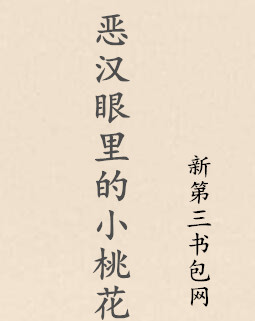 恶汉眼里的小桃花
新第三书包网